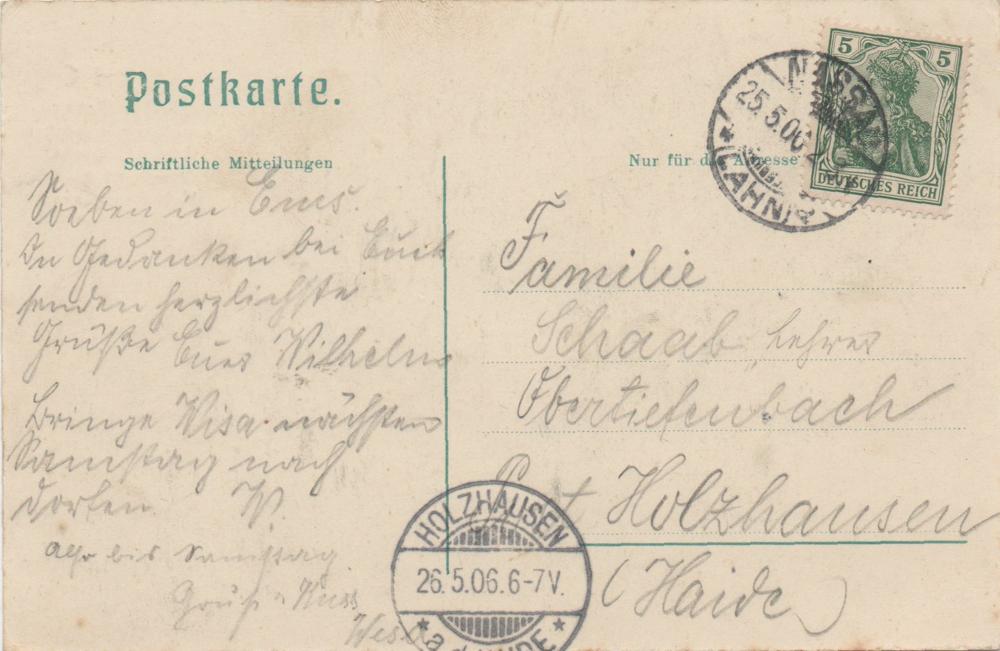 Postkarte.
Schriftliche Mitteilungen
Soeben in Ems.
In Gedanken bei Euch
senden herzlichste
Grüße Euer Wilhelm
Bringe Wisa nächsten
Samstag nach
dorten. W.
Also bis Samstag
Gruß
Nur für die Adresse
5 5
DEUTSCHES REICH
NASSAU
25.5.06
(LAHN)
Familie
Schaab, Lehrer
Obertiefenbach
Post Holzhausen
(Haide)
HOLZHAUSEN
26.5.06.6-7V.
* a.d. HAIDE *